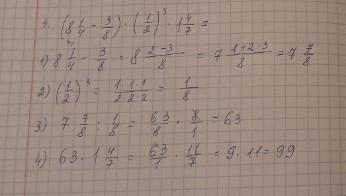 4. (8 1/4 - 3/8) : (1/2)³ · 1 4/7 =
1) 8 1/4 - 3/8 = 8 (2-3)/8 = 7 (8+2-3)/8 = 7 7/8
2) (1/2)³ = (1·1·1)/(2·2·2) = 1/8
3) 7 7/8 : 1/8 = 63/8 · 8/1 = 63
4) 63 · 1 4/7 = 63/1 · 11/7 = 9 · 11 = 99